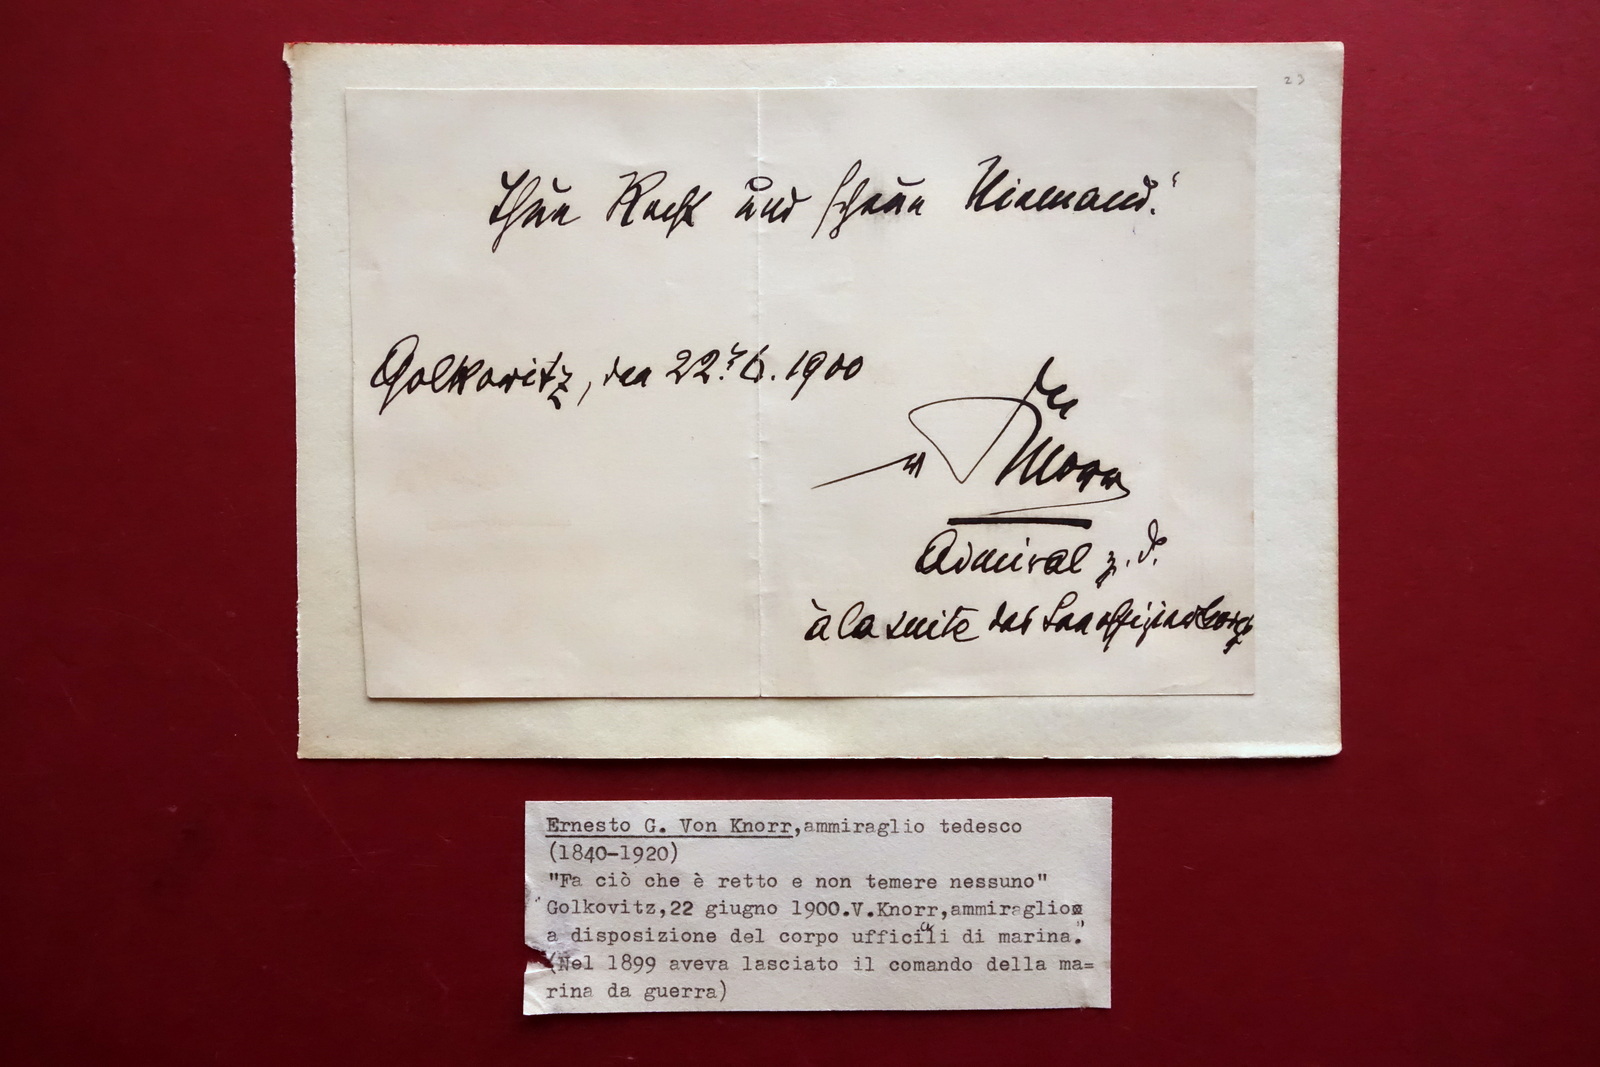 23
Thue Recht und scheue Niemand."
Golkowitz, den 22.t 6. 1900
v Knorr
Admiral z. D.
à la suite des Seeoffiziercorps
Ernesto G. Von Knorr,ammiraglio tedesco
(1840-1920)
"Fa ciò che è retto e non temere nessuno"
Golkovitz,22 giugno 1900.V.Knorr,ammiraglio
a disposizione del corpo ufficiali di marina."
(Nel 1899 aveva lasciato il comando della ma=
rina da guerra)